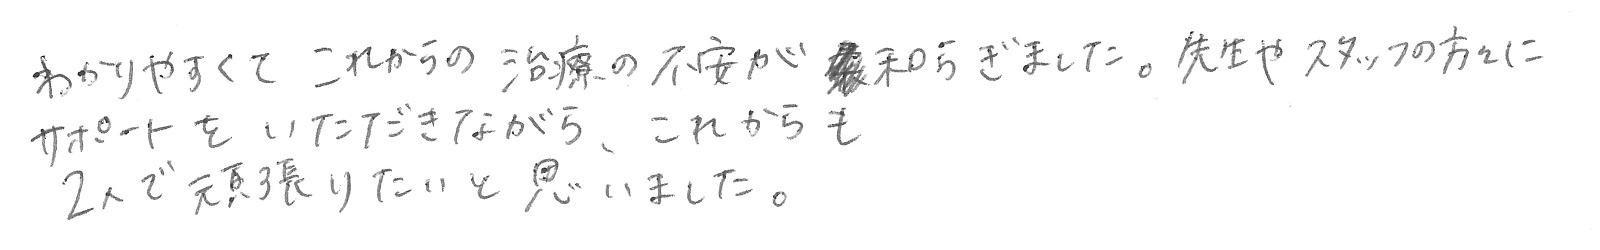 わかりやすくて これからの 治療の不安が 和らぎました。先生やスタッフの方々に
サポートをいただきながら、これからも
2人で頑張りたいと思いました。